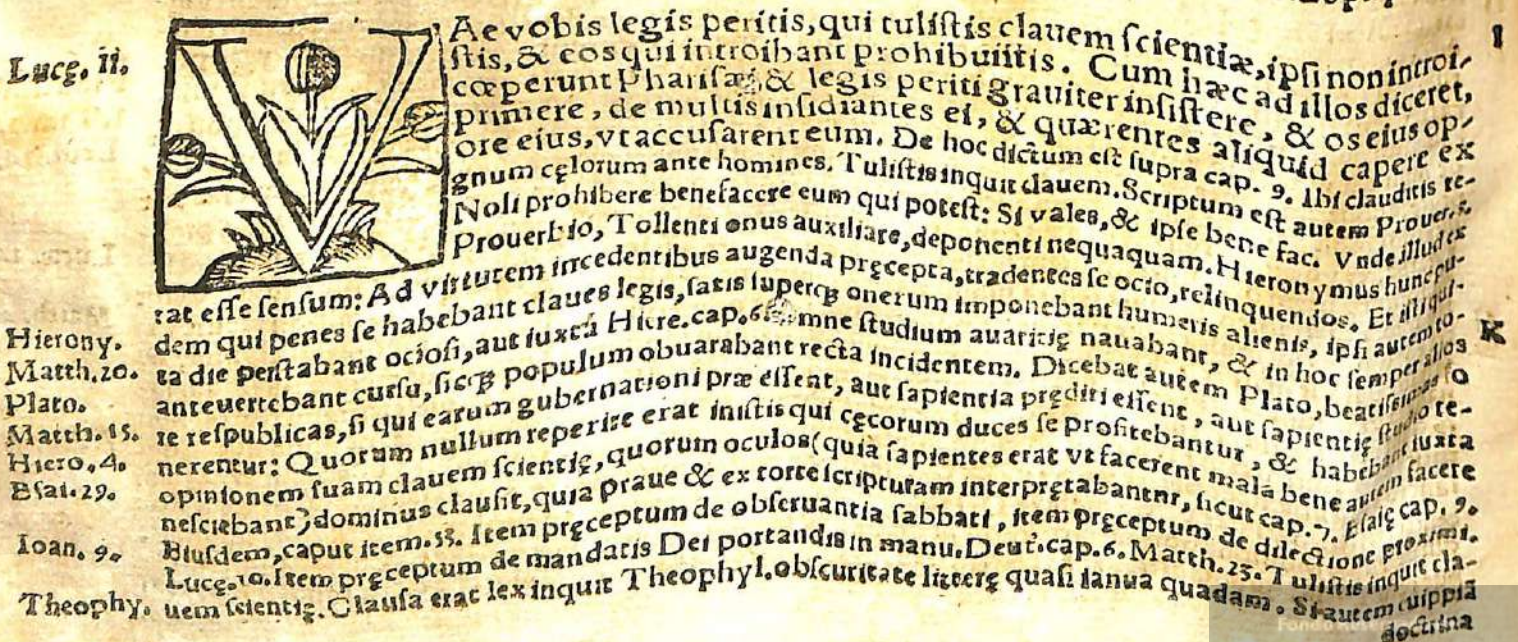 Lucę. 11.
VAe vobis legis peritis, qui tuliſtis clauem ſcientiæ, ipſi non introi-
I
ſtis, & eos qui introibant prohibuiſtis. Cum hæc ad illos diceret,
cœperunt Phariſæi & legis periti grauiter inſiſtere, & os eius op-
primere, de multis inſidiantes ei, & quærentes aliquid capere ex
ore eius, vt accuſarent eum. De hoc dictum eſt ſupra cap. 9. Ibi clauditis re-
gnum cęlorum ante homines. Tuliſtis inquit clauem. Scriptum eſt autem Prouer. 3.
Noli prohibere benefacere eum qui poteſt: Si vales, & ipſe bene fac. Vnde illud ex
Prouerbio, Tollenti onus auxiliare, deponenti nequaquam. Hieronymus hunc pu-
tat eſſe ſenſum: Ad virtutem incedentibus augenda pręcepta, tradentes ſe ocio, relinquendos. Et iſti qui-
Hierony.
dem qui penes ſe habebant claues legis, ſatis ſuperq; onerum imponebant humeris alienis, ipſi autem to-
K
Matth. 20.
ta die perſtabant ocioſi, aut iuxta Hiere. cap. 6. omne ſtudium auaritię nauabant, & in hoc ſemper alios
Plato.
anteuertebant curſu, ſicq; populum obuarabant recta incidentem. Dicebat autem Plato, beatiſſimas fo
Matth. 15.
re reſpublicas, ſi qui earum gubernationi præ eſſent, aut ſapientia pręditi eſſent, aut ſapientię ſtudio te-
Hiero. 4.
nerentur: Quorum nullum reperire erat in iſtis qui cęcorum duces ſe profitebantur, & habebant iuxta
Eſai. 29.
opinionem ſuam clauem ſcientię, quorum oculos (quia ſapientes erat vt facerent mala bene autem facere
neſciebant) dominus clauſit, quia praue & ex torte ſcripturam interpretabantnr, ſicut cap. 7. Eſaię cap. 9.
Ioan. 9.
Eiuſdem, caput item. 33. Item pręceptum de obſeruantia ſabbati, item pręceptum de dilectione proximi.
Lucę. 10. Item pręceptum de mandatis Dei portandis in manu. Deut. cap. 6. Matth. 23. Tuliſtis inquit cla-
Theophy.
uem ſcientię. Clauſa erat lex inquit Theophyl. obſcuritate litterę quaſi ianua quadam. Si autem cuippiã
doctrina